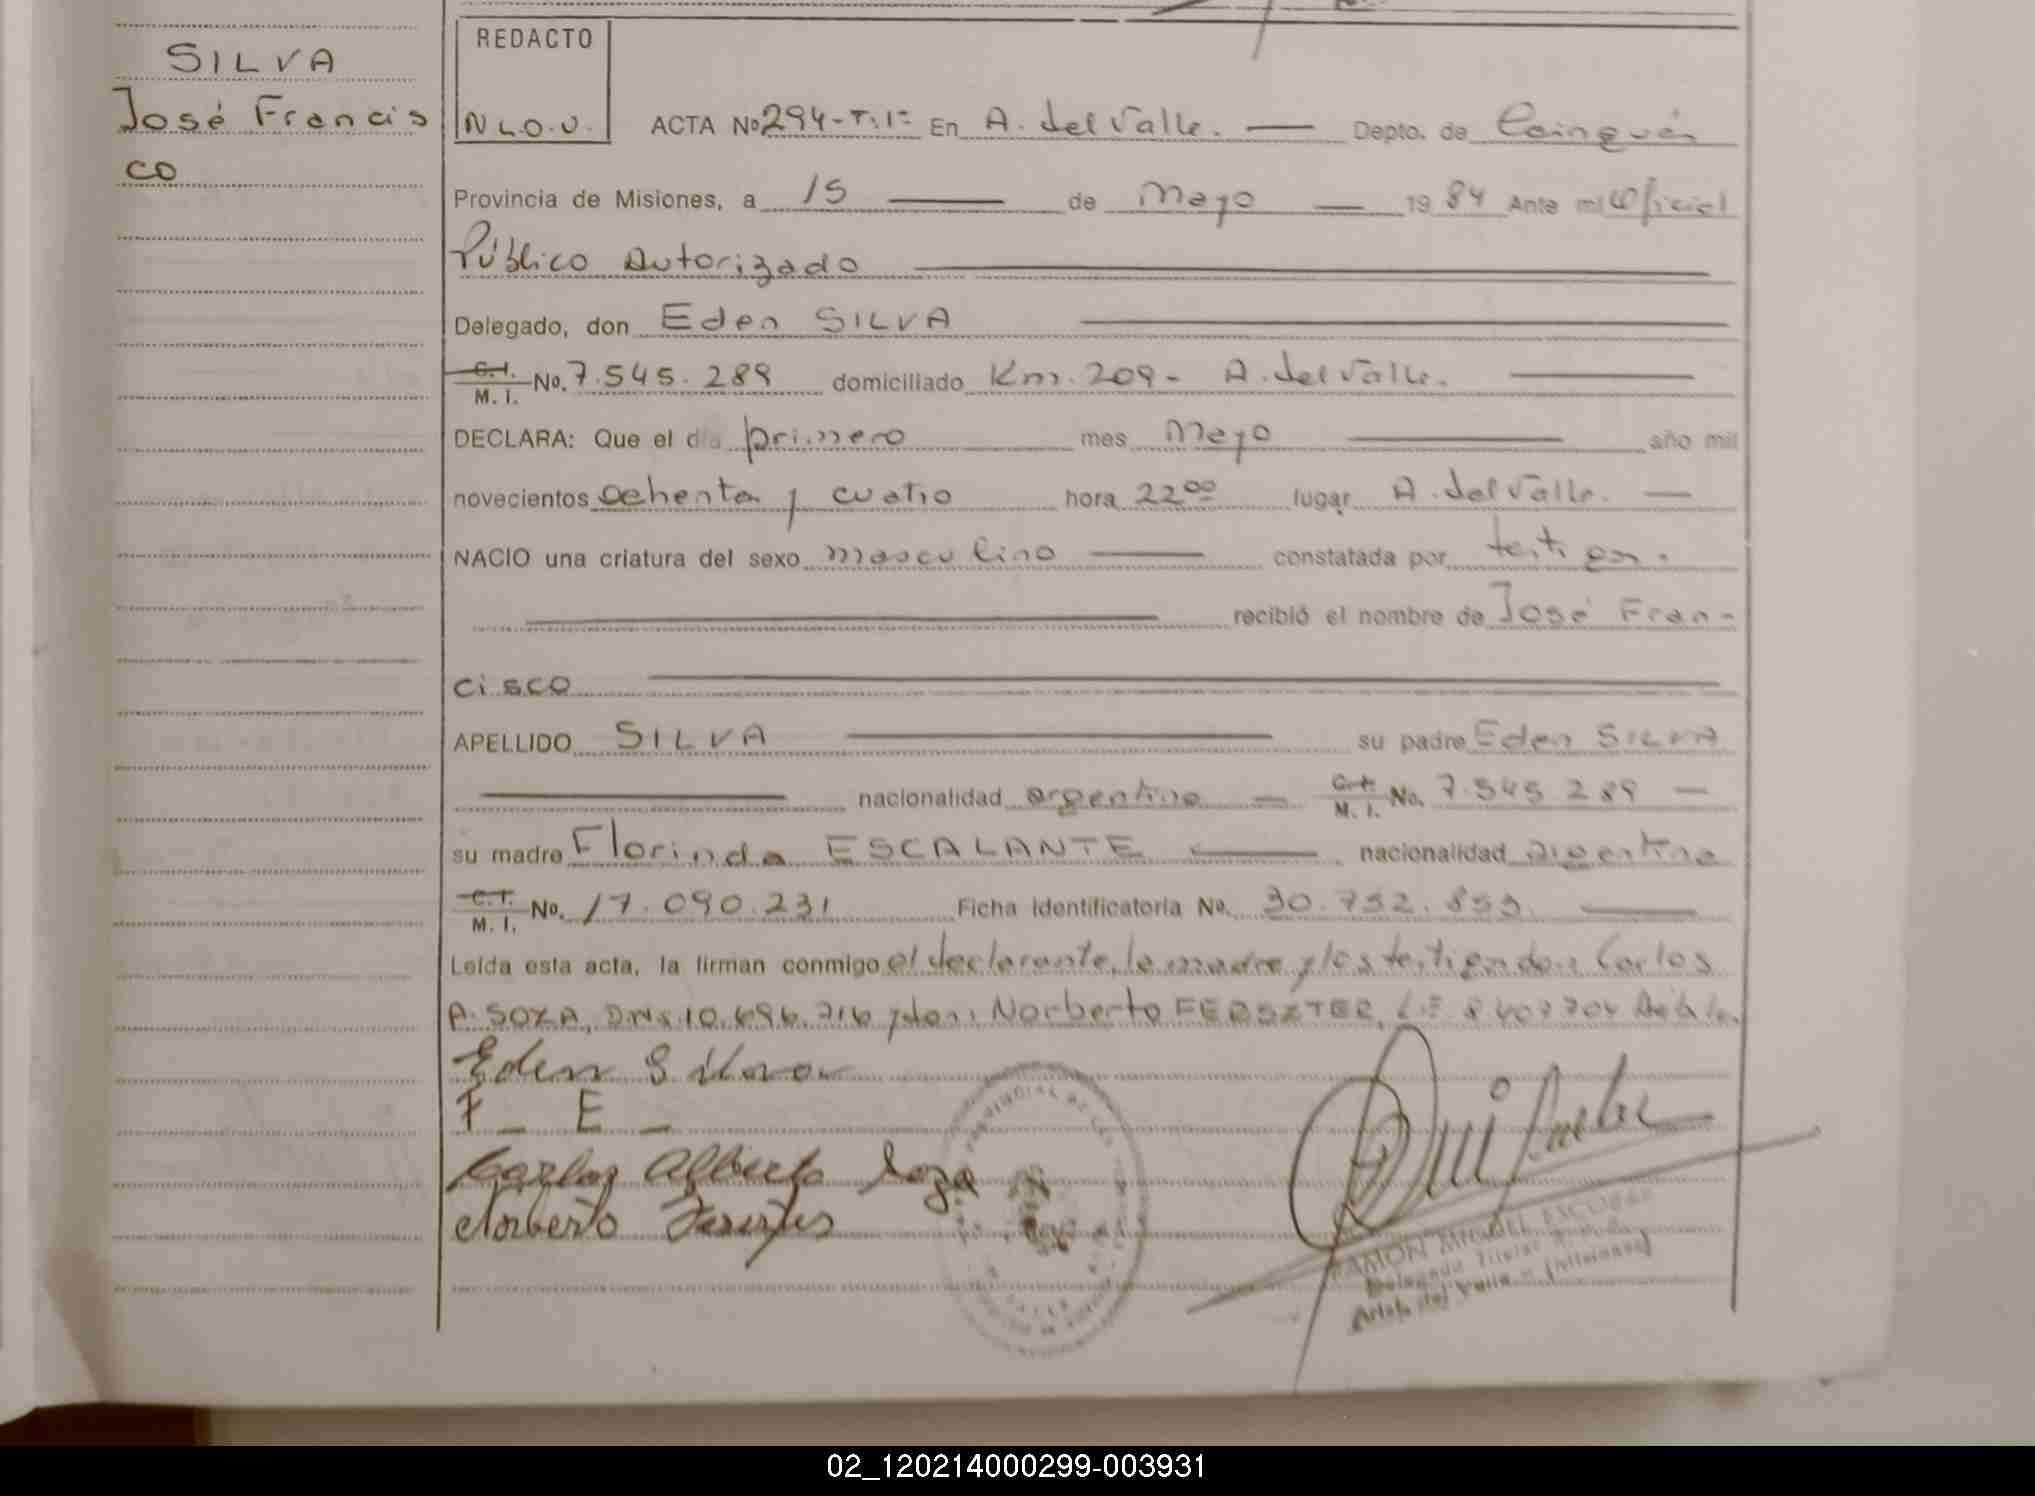 SILVA
José Francis
co
REDACTO
N L.O.V.
ACTA No 294-T.1º En A. del Valle. Depto. de Cainguás
Provincia de Misiones, a 15 de Mayo 1984 Ante mi Oficial
Público Autorizado
Delegado, don Eden SILVA
C.I. M. I. No. 7.545.289 domiciliado Km. 209- A. del Valle.
DECLARA: Que el día primero mes Mayo año mil
novecientos ochenta y cuatro hora 22oo lugar A. del Valle.
NACIO una criatura del sexo masculino constatada por testigos.
recibió el nombre de José Fran-
cisco
APELLIDO SILVA su padre Eden SILVA
nacionalidad argentino C.I. M. I. No. 7.545 289
su madre Florinda ESCALANTE nacionalidad argentina
C.I. M. I. No. 17.090.231 Ficha identificatoria No. 30.752.853.
Leída esta acta, la firman conmigo el declarante, la madre y los testigos don: Carlos
A. SOZA, 10.696.716 y don: Norberto
Eden Silva
F_ E_
Carlos Alberto Soza
Norberto
RAMON MIGUEL ESCOBAR
Delegado Titular
Aristó. del Valle - (Misiones)
02_120214000299-003931